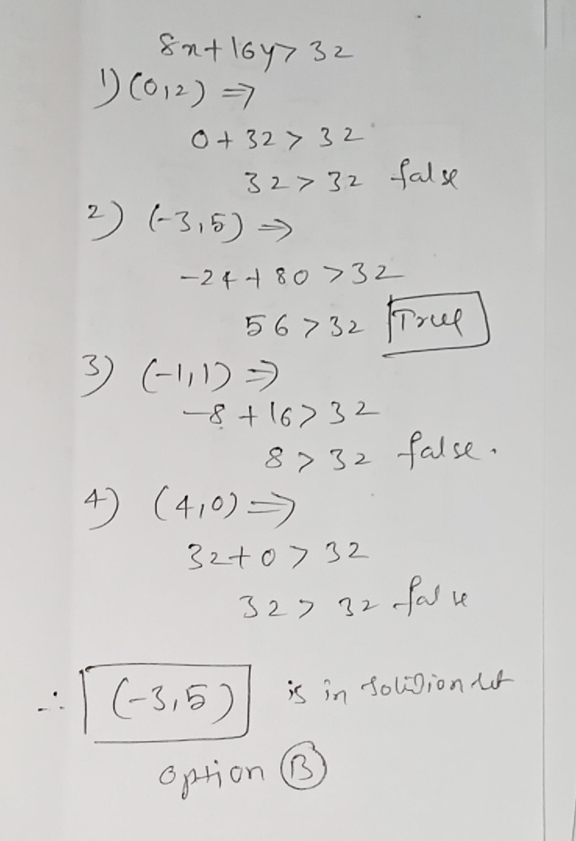 8x+16y>32
1) (0,2) ⇒
0+32>32
32>32 false
2) (-3,5) ⇒
-24+80>32
56>32 True
3) (-1,1) ⇒
-8+16>32
8>32 false.
4) (4,0) ⇒
32+0>32
32>32 false
∴ (-3,5) is in solution set
option B